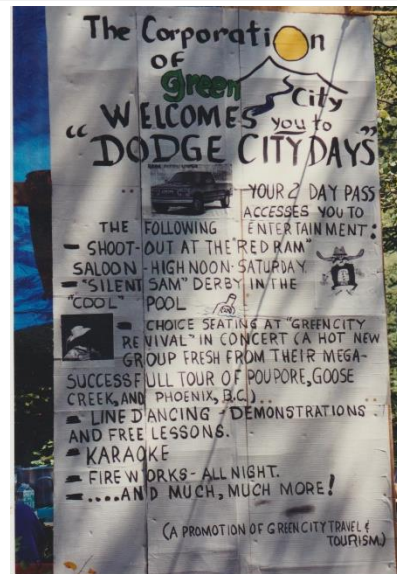 The Corporation
OF
green City
WELCOMES you to
"DODGE CITY DAYS"
YOUR 2 DAY PASS
ACCESSES YOU TO
THE FOLLOWING ENTERTAINMENT:
- SHOOT-OUT AT THE "RED RAM"
SALOON - HIGH NOON - SATURDAY
- "SILENT SAM" DERBY IN THE
"COOL" POOL
- CHOICE SEATING AT "GREEN CITY
REVIVAL" IN CONCERT (A HOT NEW
GROUP FRESH FROM THEIR MEGA-
SUCCESSFULL TOUR OF POUPORE, GOOSE
CREEK, AND PHOENIX, B.C.)..
- LINE DANCING - DEMONSTRATIONS
AND FREE LESSONS.
- KARAOKE
- FIREWORKS - ALL NIGHT.
- ....AND MUCH, MUCH MORE!
(A PROMOTION OF GREEN CITY TRAVEL &
TOURISM)